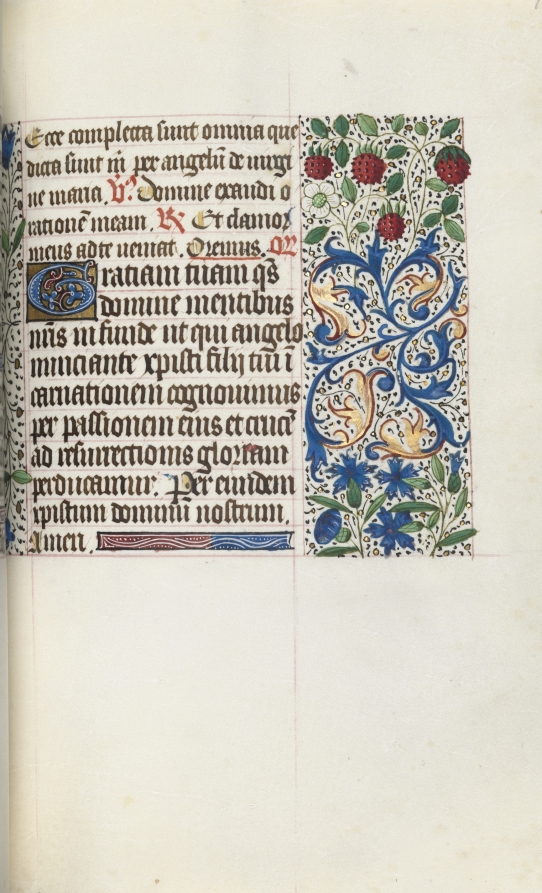 Ecce completa sunt omnia que
dicta sunt m̄ per angelū de virgi
ne maria. V̄. Domine exaudi o
rationē meam. R̄ Et clamor
meus ad te veniat. Oremus. Or̄
Gratiam tuam q̄s
domine mentibus
nr̄is infunde ut qui angelo
nunciante xpisti filij tui ī
carnationem cognouimus
per passionem eius et crucē
ad resurrectionis gloriam
perducamur. Per eundem
xpistum dominū nostrum
Amen.